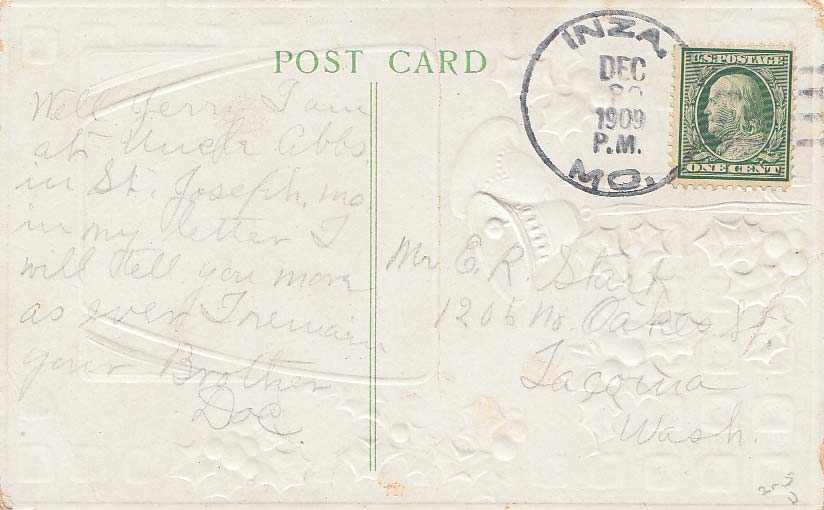 POST CARD
INZA,
DEC
1909
P.M.
MO.
U.S. POSTAGE
ONE CENT
Well Jerry I am
at Uncle Abbs.
in St. Joseph, Mo.
in my letter I
will tell you more
as ever I remain
your Brother
Doc
Mr E. R Stark
1206 No. Oakes St.
Tacoma
Wash.